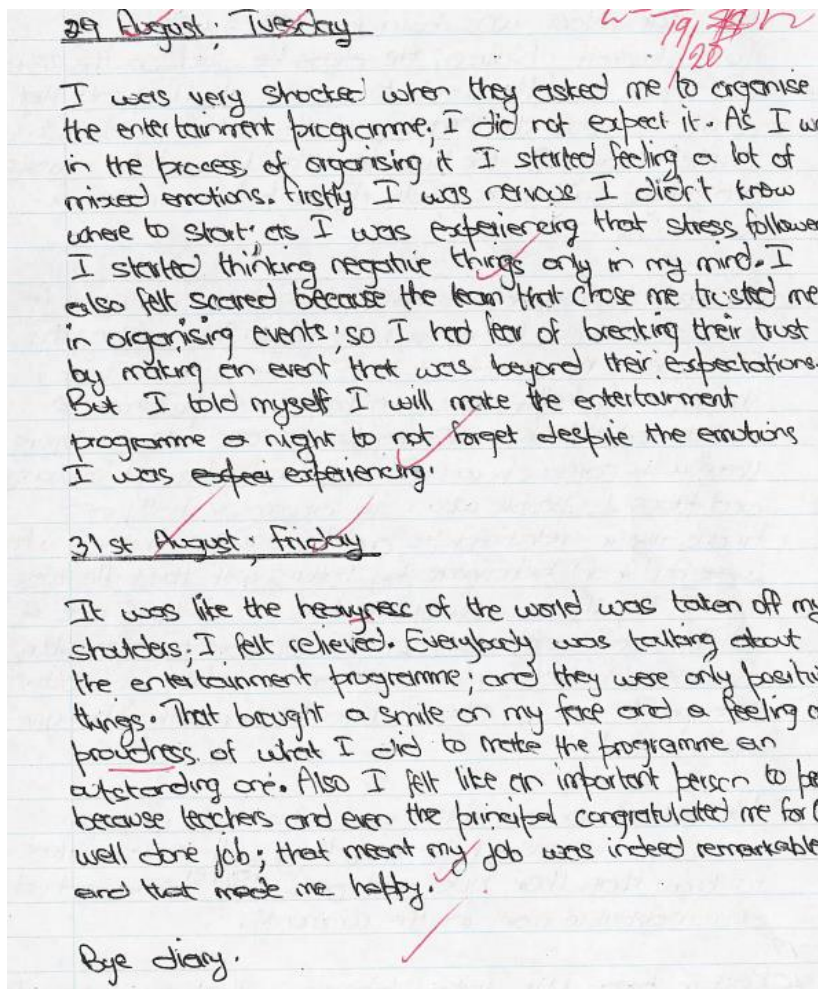 29 August; Tuesday
19/20
I was very shocked when they asked me to organise
the entertainment programme; I did not expect it. As I wa
in the process of organising it I started feeling a lot of
mixed emotions. Firstly I was nervous I didn't know
where to start; as I was experiencing that stress followed
I started thinking negative things only in my mind. I
also felt scared because the team that chose me trusted me
in organising events; so I had fear of breaking their trust
by making an event that was beyond their expectations.
But I told myself I will make the entertainment
programme a night to not forget despite the emotions
I was expei experiencing.
31st August; Friday
It was like the heavyness of the world was taken off my
shoulders; I felt relieved. Everybody was talking about
the entertainment programme; and they were only positiv
things. That brought a smile on my face and a feeling o
proudness of what I did to make the programme an
outstanding one. Also I felt like an important person to pe
because teachers and even the principal congratulated me for
well done job; that meant my job was indeed remarkable
and that made me happy.
Bye diary.